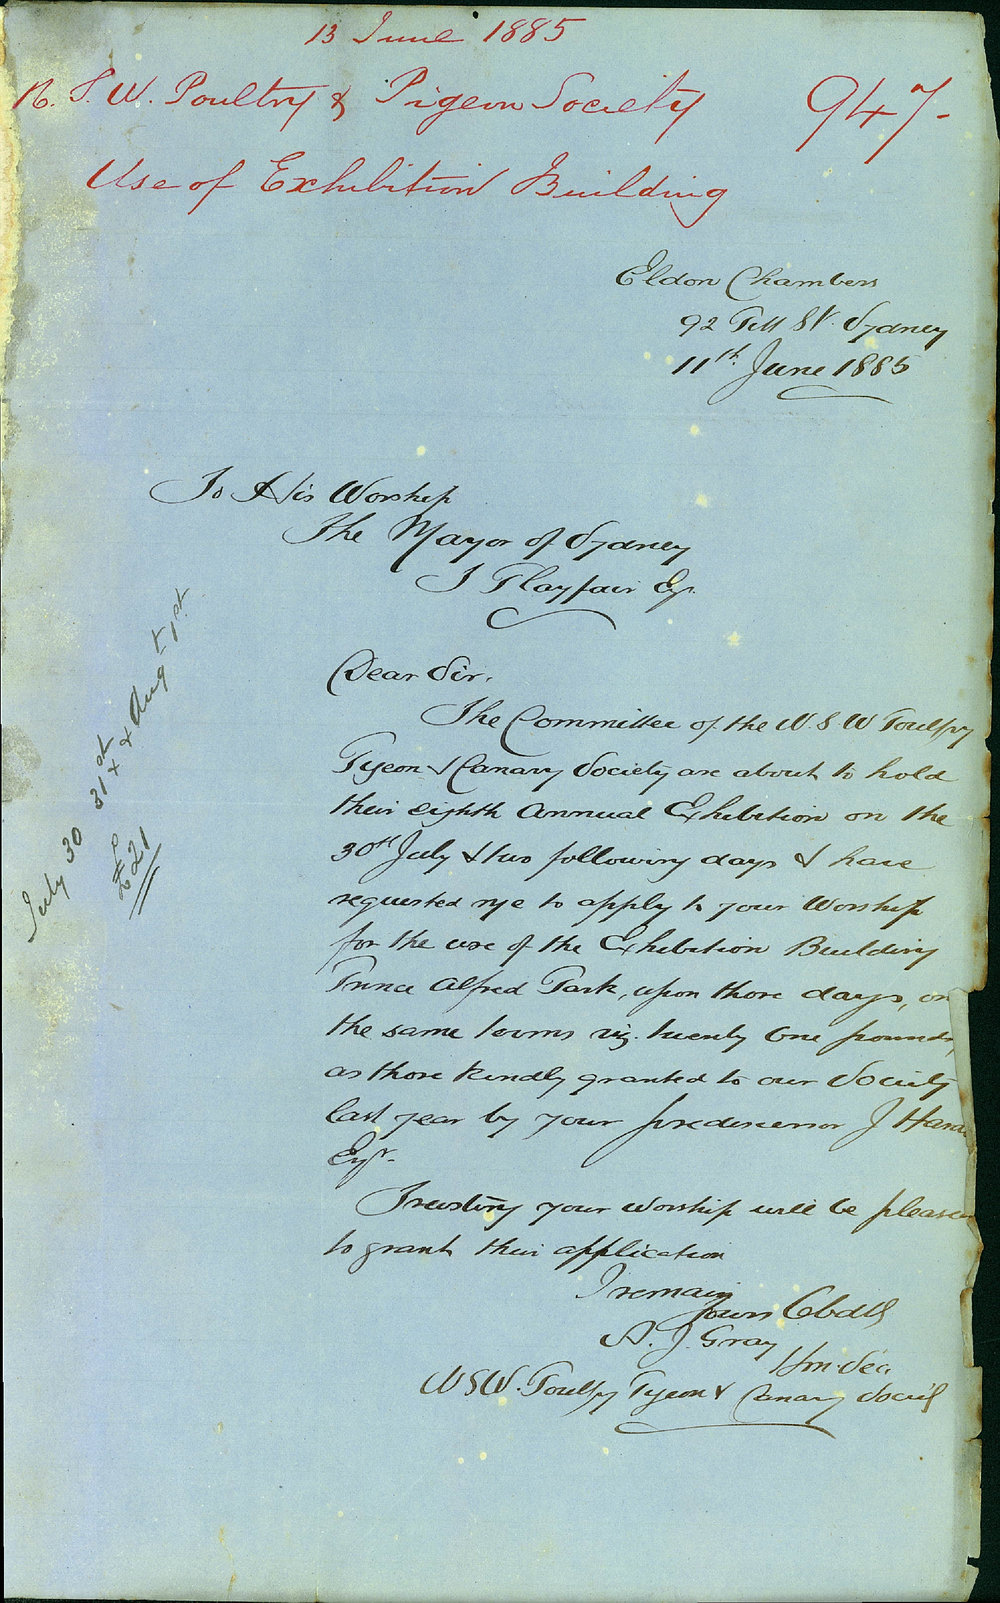 13 June 1885
N. S. W. Poultry & Pigeon Society 947-
Use of Exhibition Building
Eldon Chambers
92 Pitt St. Sydney
11th June 1885
To His Worship
The Mayor of Sydney
J Playfair Esqr.
Dear Sir,
The Committee of the N. S W Poultry
Pigeon & Canary Society are about to hold
their eighth Annual Exhibition on the
30th July & two following days & have
requested me to apply to your Worship
for the use of the Exhibition Building
Prince Alfred Park, upon those days, on
the same terms viz. twenty One pounds,
as those kindly granted to our Society
last year by your predecessor J
Esqr.
Trusting your worship will be pleased
to grant this application
I remain
Yours Obdtly
A. J. Gray
Hon. Sec.
NSW. Poultry Pigeon & Canary Society
July 30 31st & Augt 1st
£21